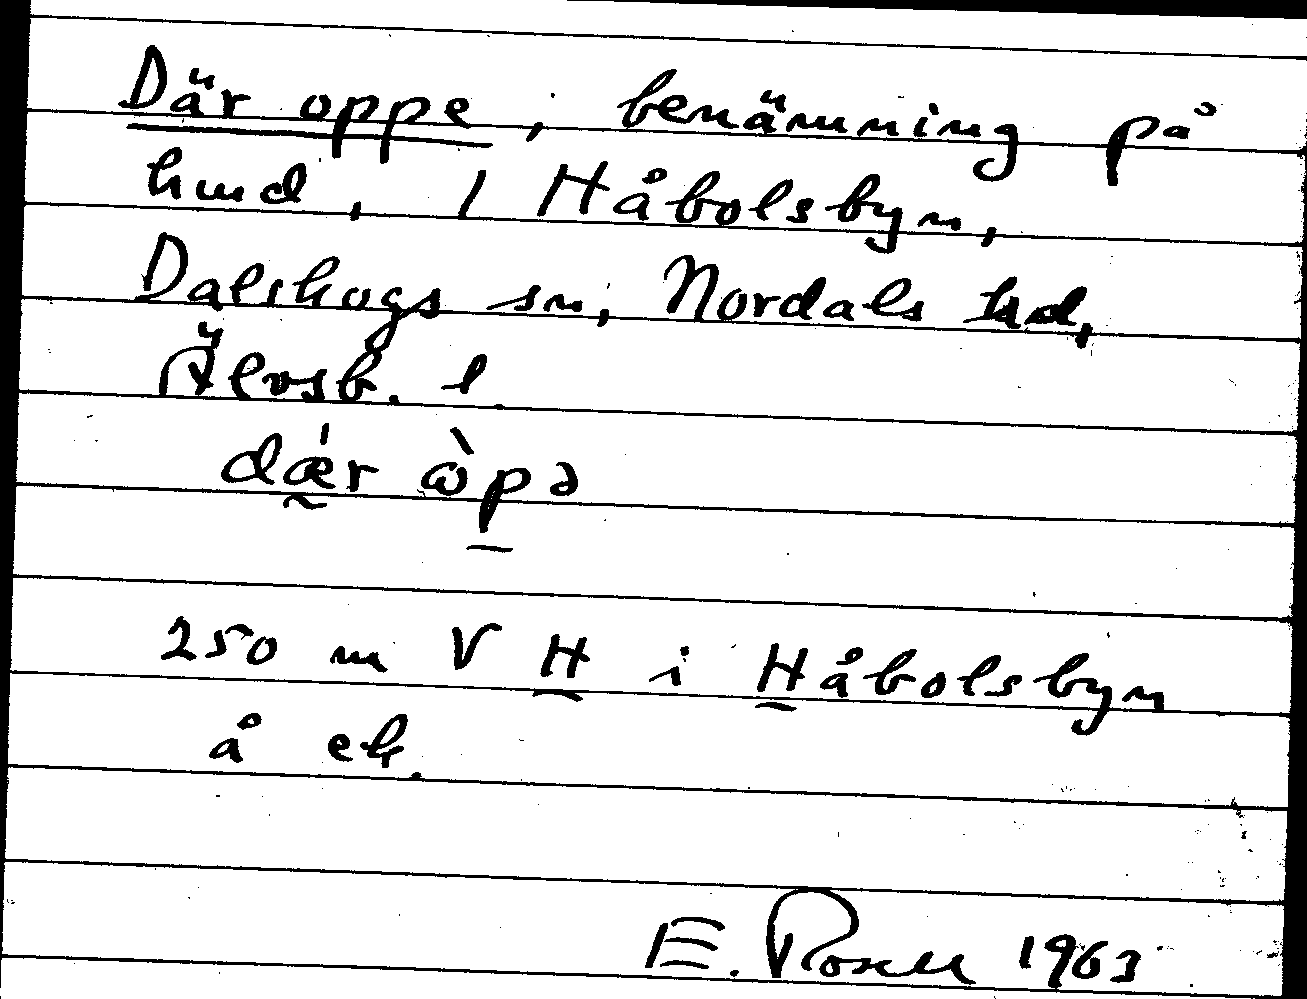 Där oppe, benämning på
hmd, 1 Håbolsbyn,
Dalskogs sn, Nordals hd,
Älvsb. l.
dǽr ὼpə
250 m V H i Håbolsbyn
å ek.
E. 1963